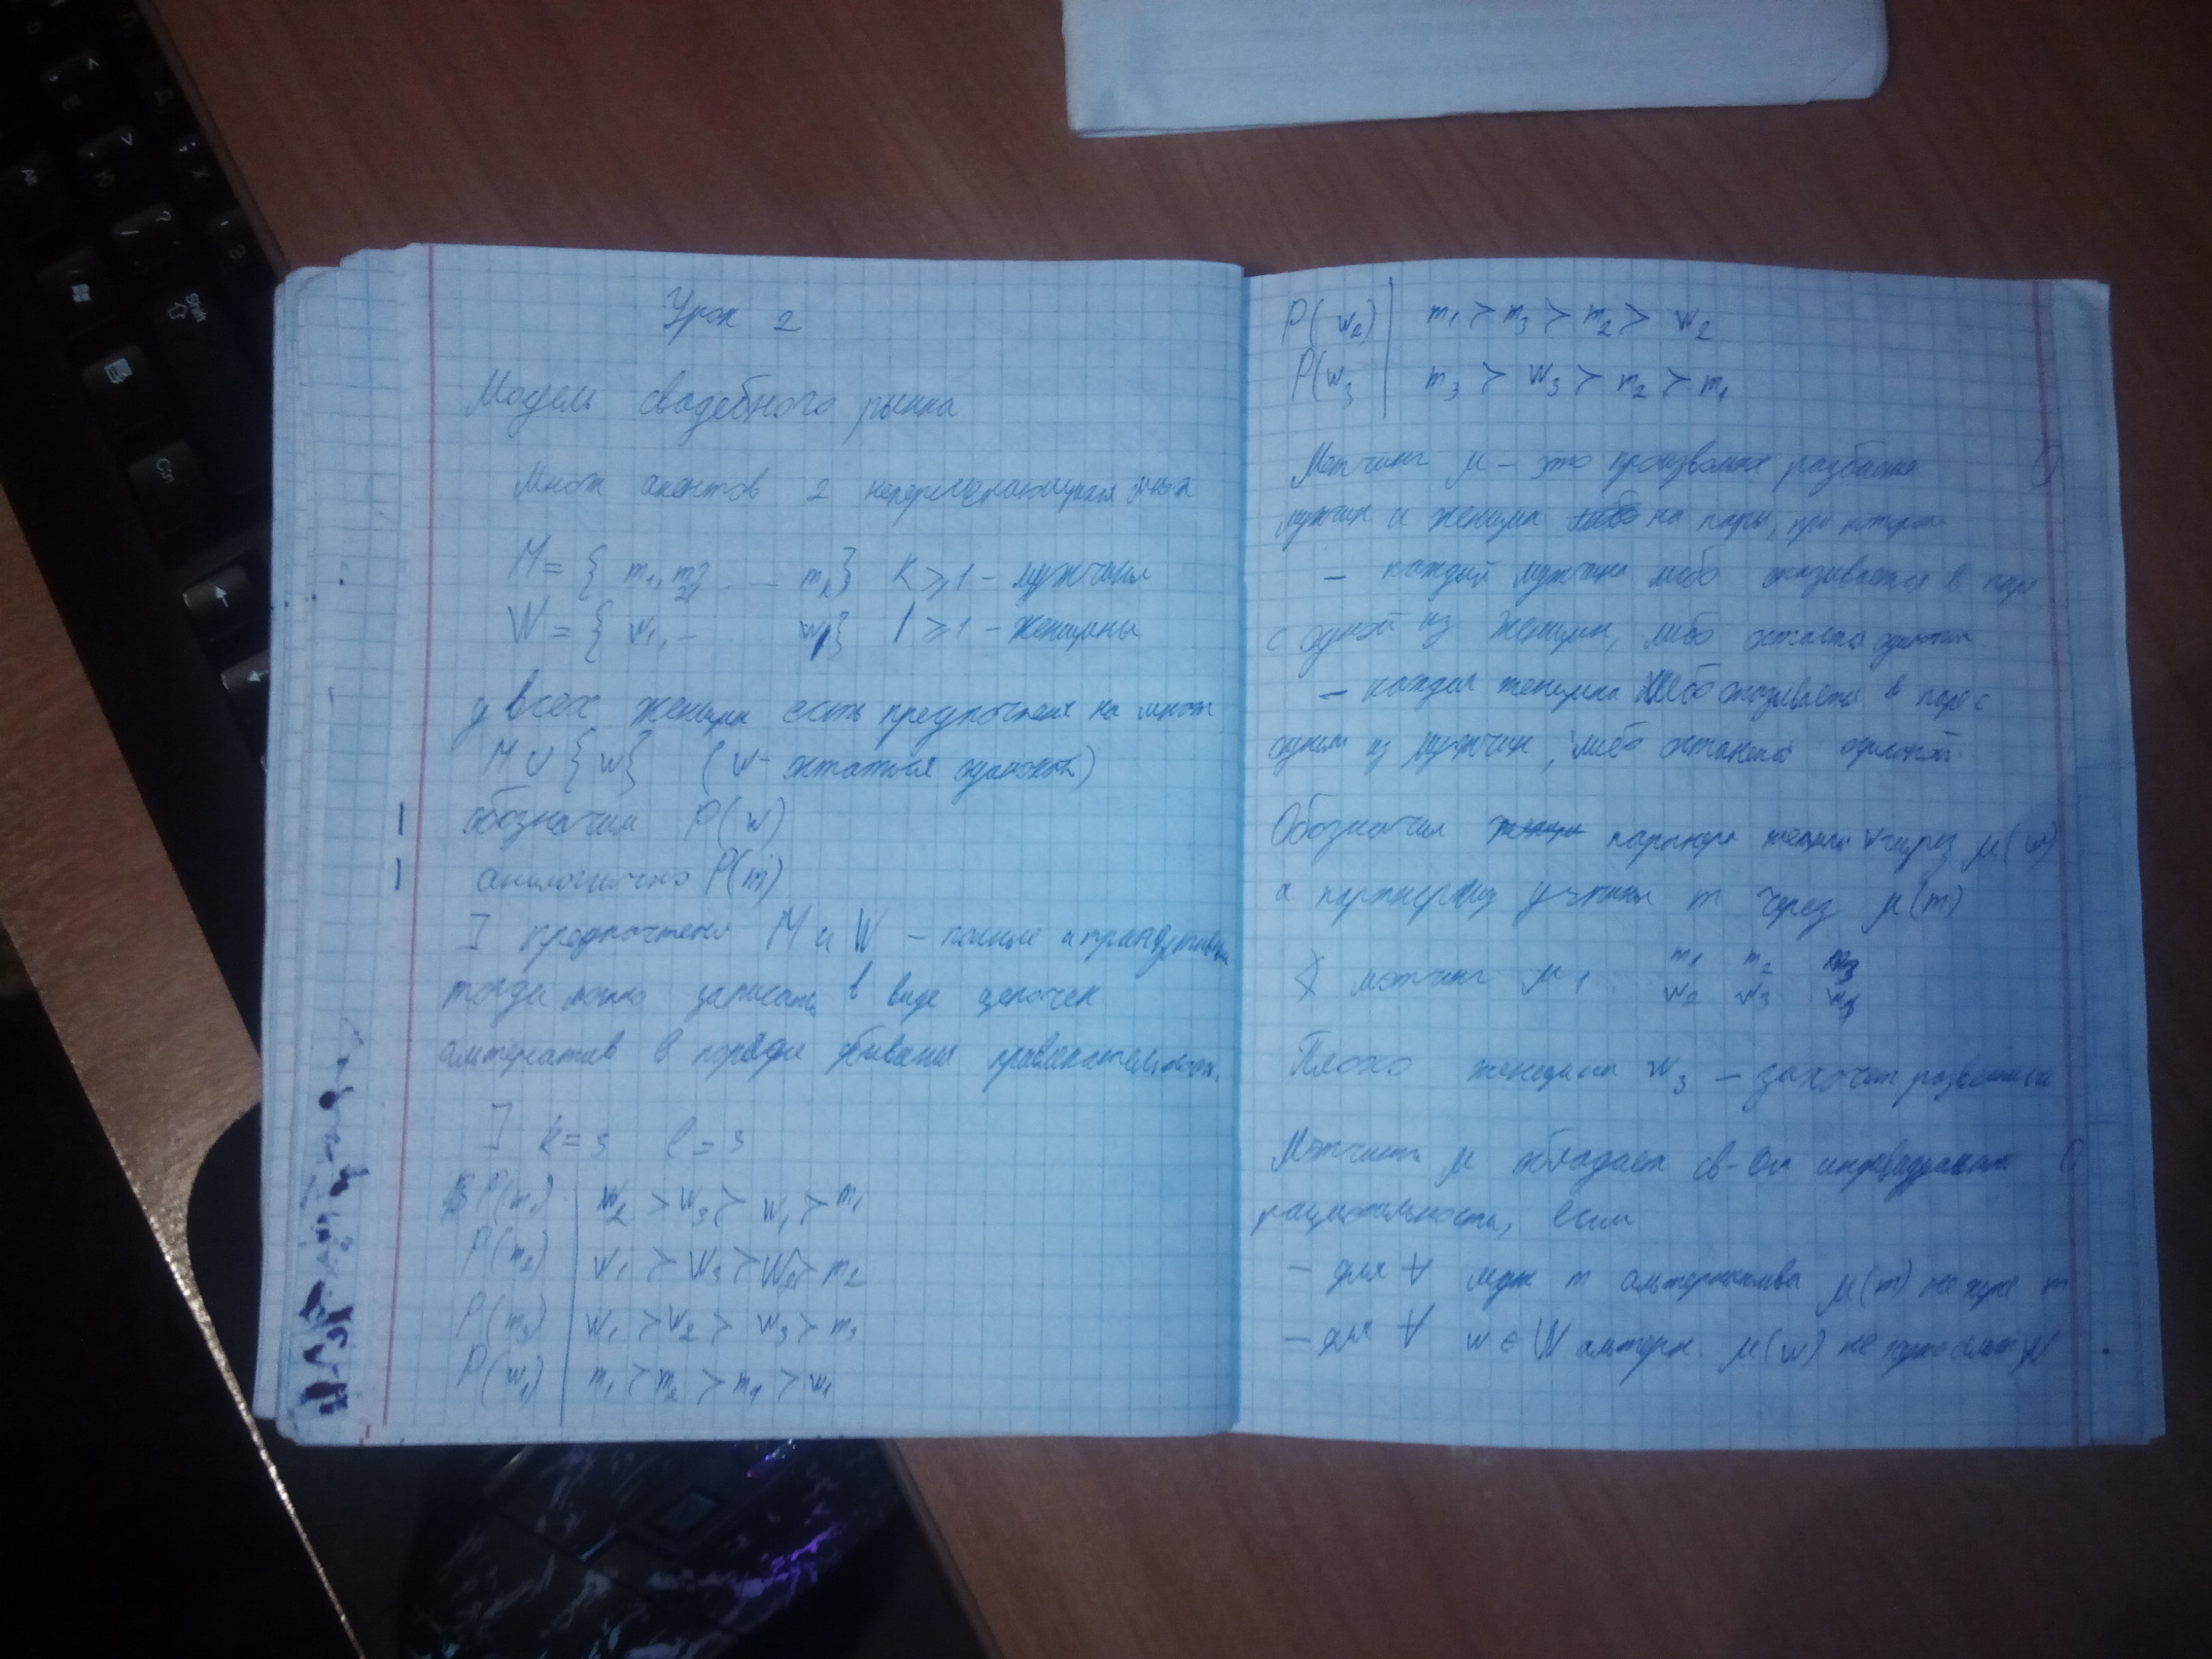 Урок 2
Модель свадебного рынка
Множ агентов 2 непересекающихся мн-а
M = { m₁, m₂, . . . mₖ} k ⩾ 1 - мужчины
W = { w₁, - w_l} l ⩾ 1 - женщины
у всех женщин есть предпочтения на множ
M ∪ {w} (w - остаться одинокой)
обозначим P(w)
аналогично P(m)
] предпочтения M и W - полные и транзитивны
тогда можно записать в виде цепочек
альтернатив в порядке убывания привлекательности.
] k = 3 l = 3
P(m₁) | w₂ > w₃ > w₁ > m₁
P(m₂) | w₁ > w₃ > w₂ > m₂
P(m₃) | w₁ > w₂ > w₃ > m₃
P(w₁) | m₁ > m₂ > m₁ > w₁
P(w₂) | m₁ > m₃ > m₂ > w₂
P(w₃ | m₃ > w₃ > m₂ > m₁
Мэтчинг μ - это произвольное разбиение
мужчин и женщин на пары, при котором
- каждый мужчина либо оказывается в паре
с одной из женщин, либо остается одиноким
- каждая женщина либо оказывается в паре с
одним из мужчин, либо остается одинокой.
Обозначим партнера женщины w через μ(w)
а партнершу мужчины m через μ(m)
мэтчинг μ₁ : m₁ m₂ m₃
w₂ w₃ w₁
Плохо женщина w₃ - захочет развестись
Мэтчинг μ обладает св-ом индивидуальной
рациональности, если
- для ∀ муж m альтернатива μ(m) не хуже m
- для ∀ w ∈ W альтерн. μ(w) не хуже w
Alt
Shift
Ctrl